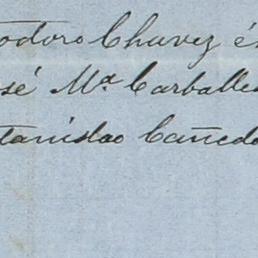 odoro Chavez é
sé Mª Carballe
tanislao Cañedo